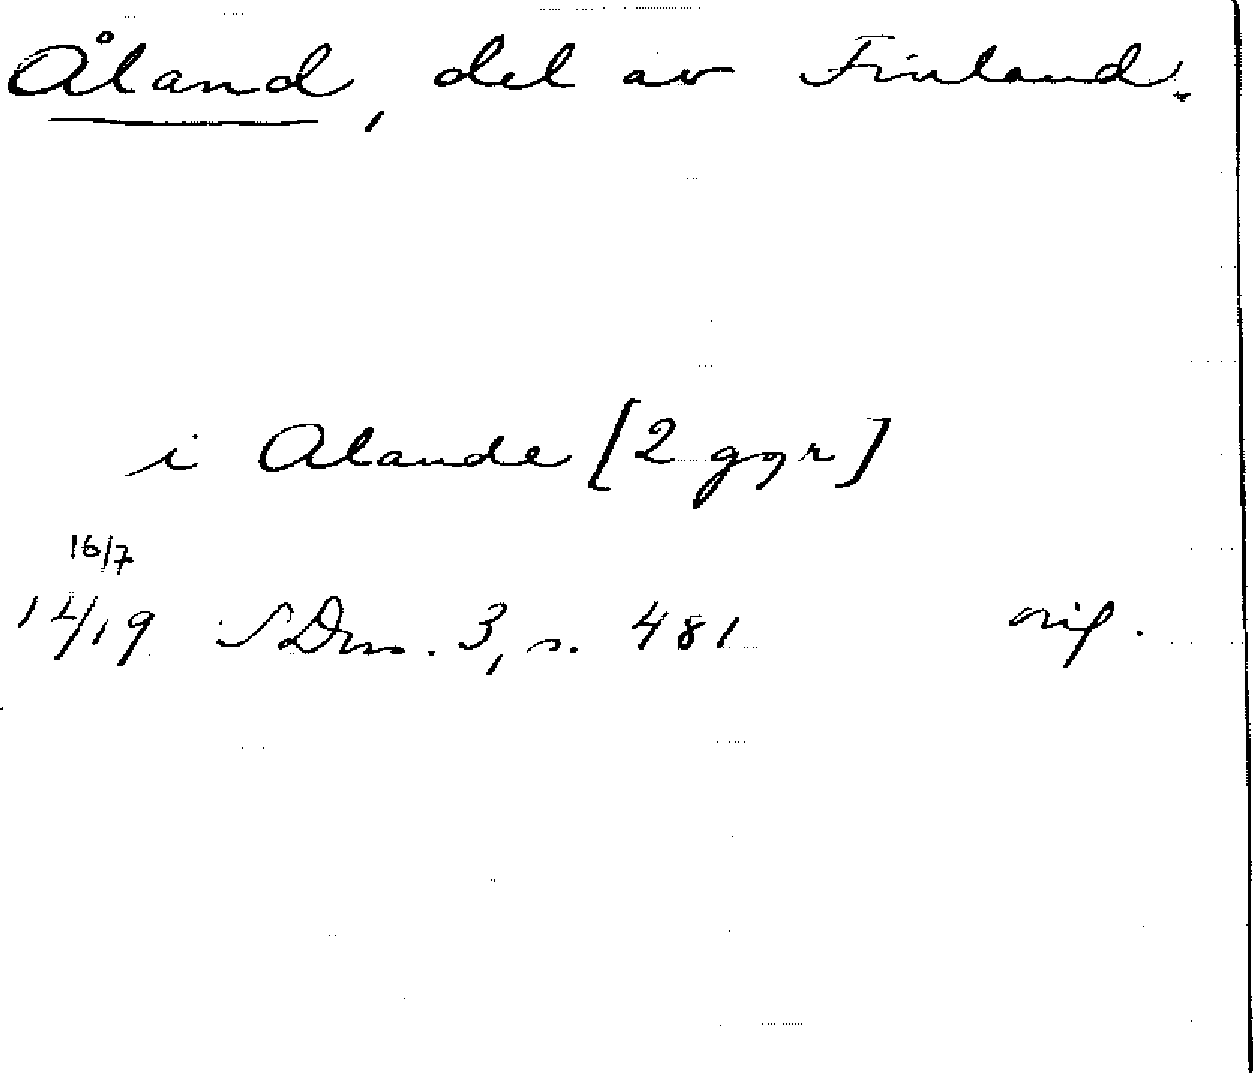 Åland, del av Finland.
i Alande [2 ggr]
16/7
14/19 SDns. 3, s. 481 orig.